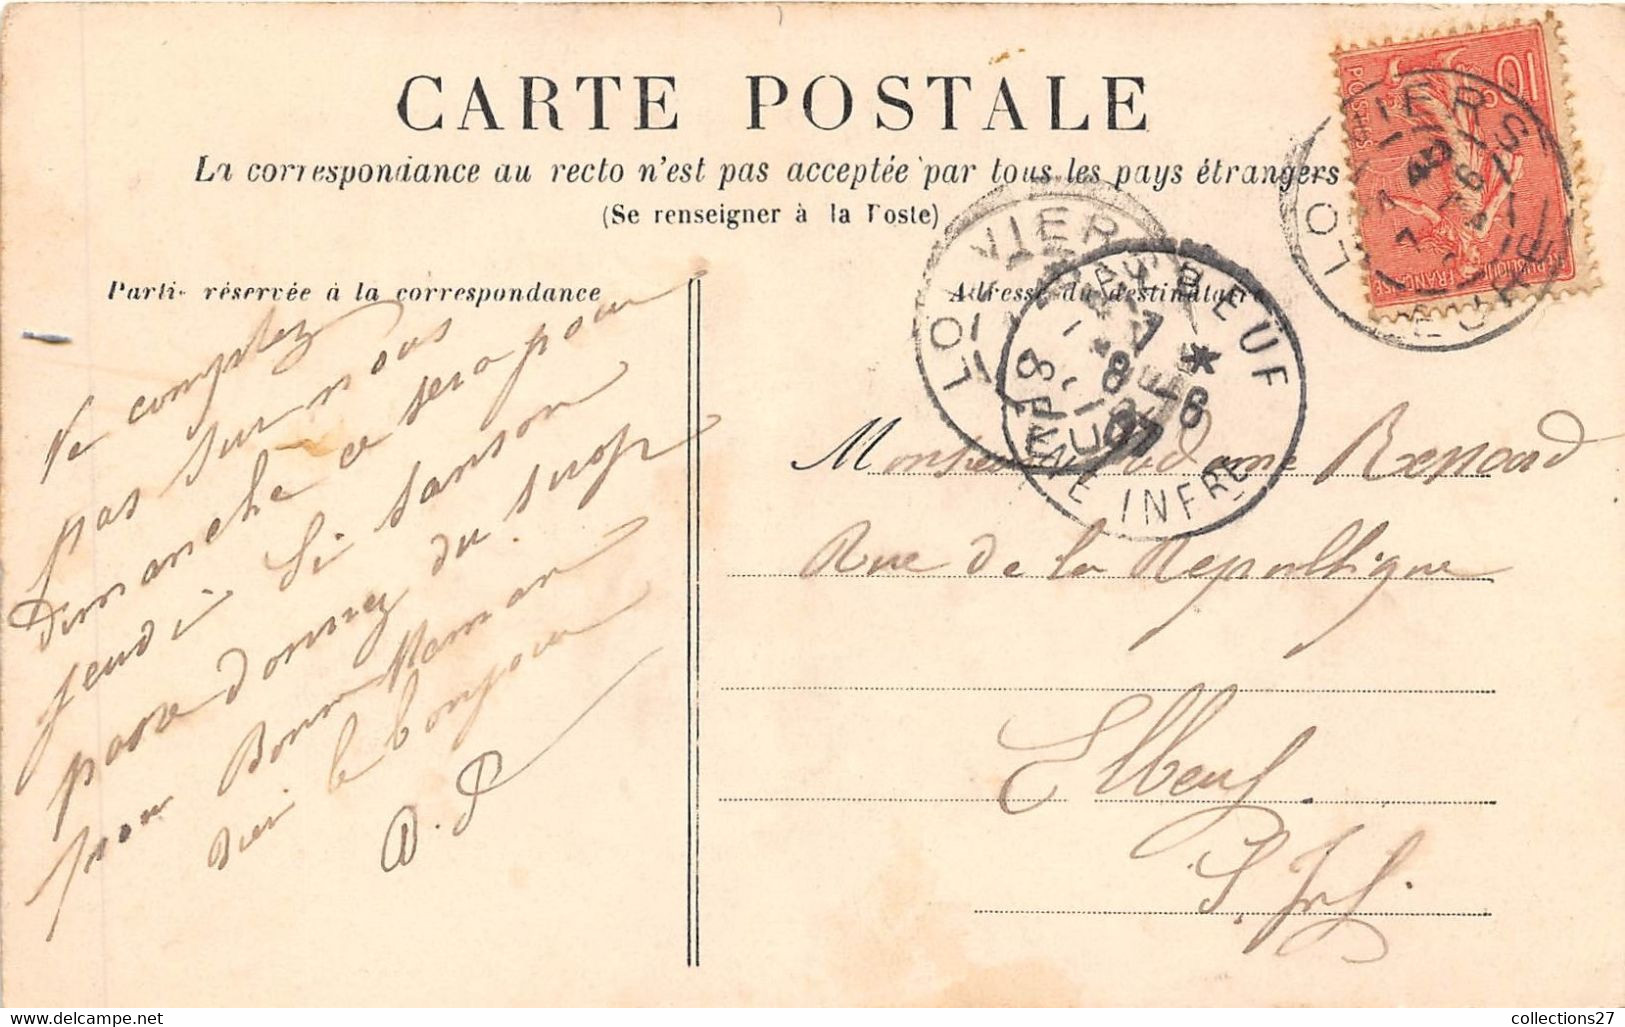 CARTE POSTALE
La correspondance au recto n'est pas acceptée par tous les pays étrangers
(Se renseigner à la Poste)
Partie réservée à la correspondance
Adresse du destinataire
Ne comptez
pas sur nous
Dimanche ce sera pour
jeudi Si sanson
passe donnez du sirop
pour Bonne Maman
le bonjour
Monsieur Madame Renard
Rue de la Republique
Elbeuf
S. Inf
LOUVIERS
EURE
LOUVIERS
ELBEUF
SEINE INFRE
10
POSTES
REPUBLIQUE FRANCAISE
collections27